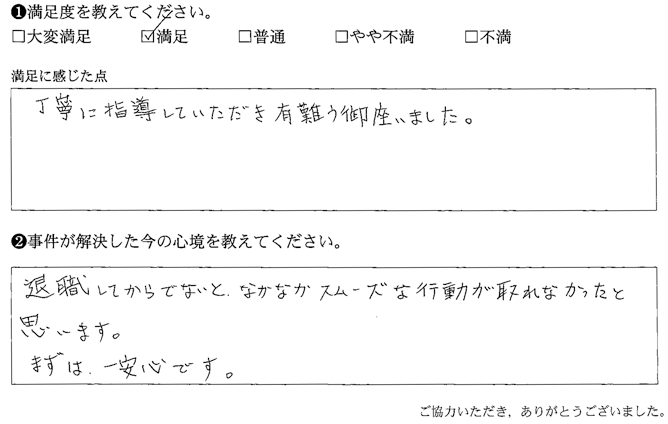 ❶満足度を教えてください。
□大変満足 ☑満足 □普通 □やや不満 □不満
満足に感じた点
丁寧に指導していただき有難う御座いました。
❷事件が解決した今の心境を教えてください。
退職してからでないと、なかなかスムーズな行動が取れなかったと
思います。
まずは、一安心です。
ご協力いただき、ありがとうございました。